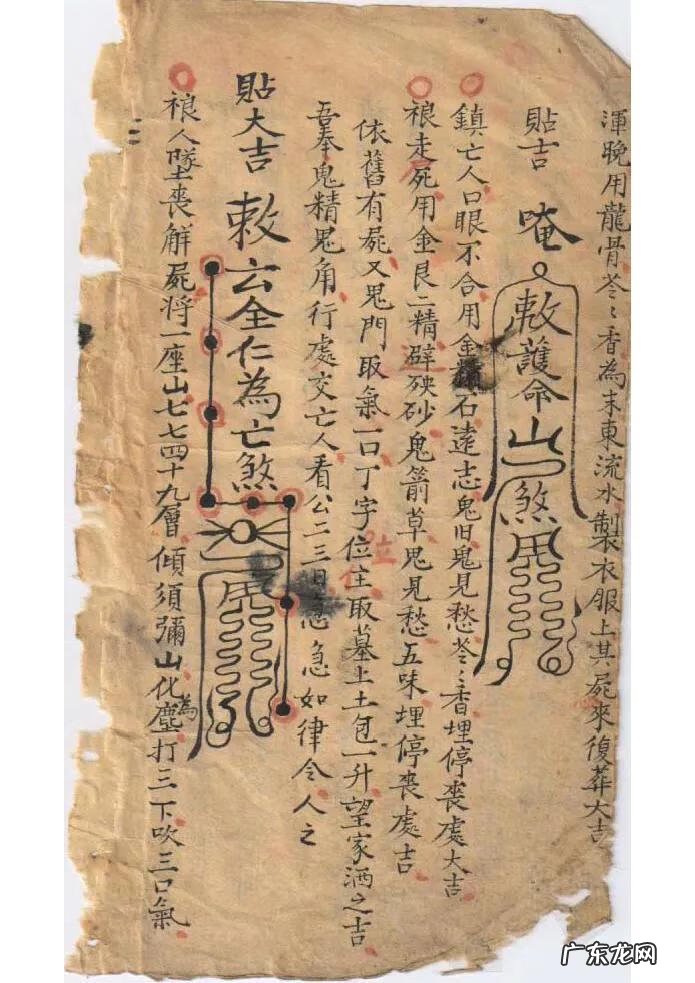 渾晚用龍骨苓〻香為末東流水製衣服上其屍來復葬大吉
貼吉 唵 敕護命山煞
鎮亡人口眼不合用金精石遠志鬼旧鬼見愁苓〻香埋停喪處大吉
褪走死用金艮二精辟殃砂鬼箭草鬼見愁五味埋停喪處吉
依舊有屍又鬼門取氣一口丁字位主取墓上土包一升望家洒之吉
吾奉鬼精鬼角行處交亡人看公二三日急急如律令人之
貼大吉 敕云全仁為亡煞
人墜喪解屍將一座山七七四十九層傾須彌山化為塵打三下吹三口氣
广东龙网